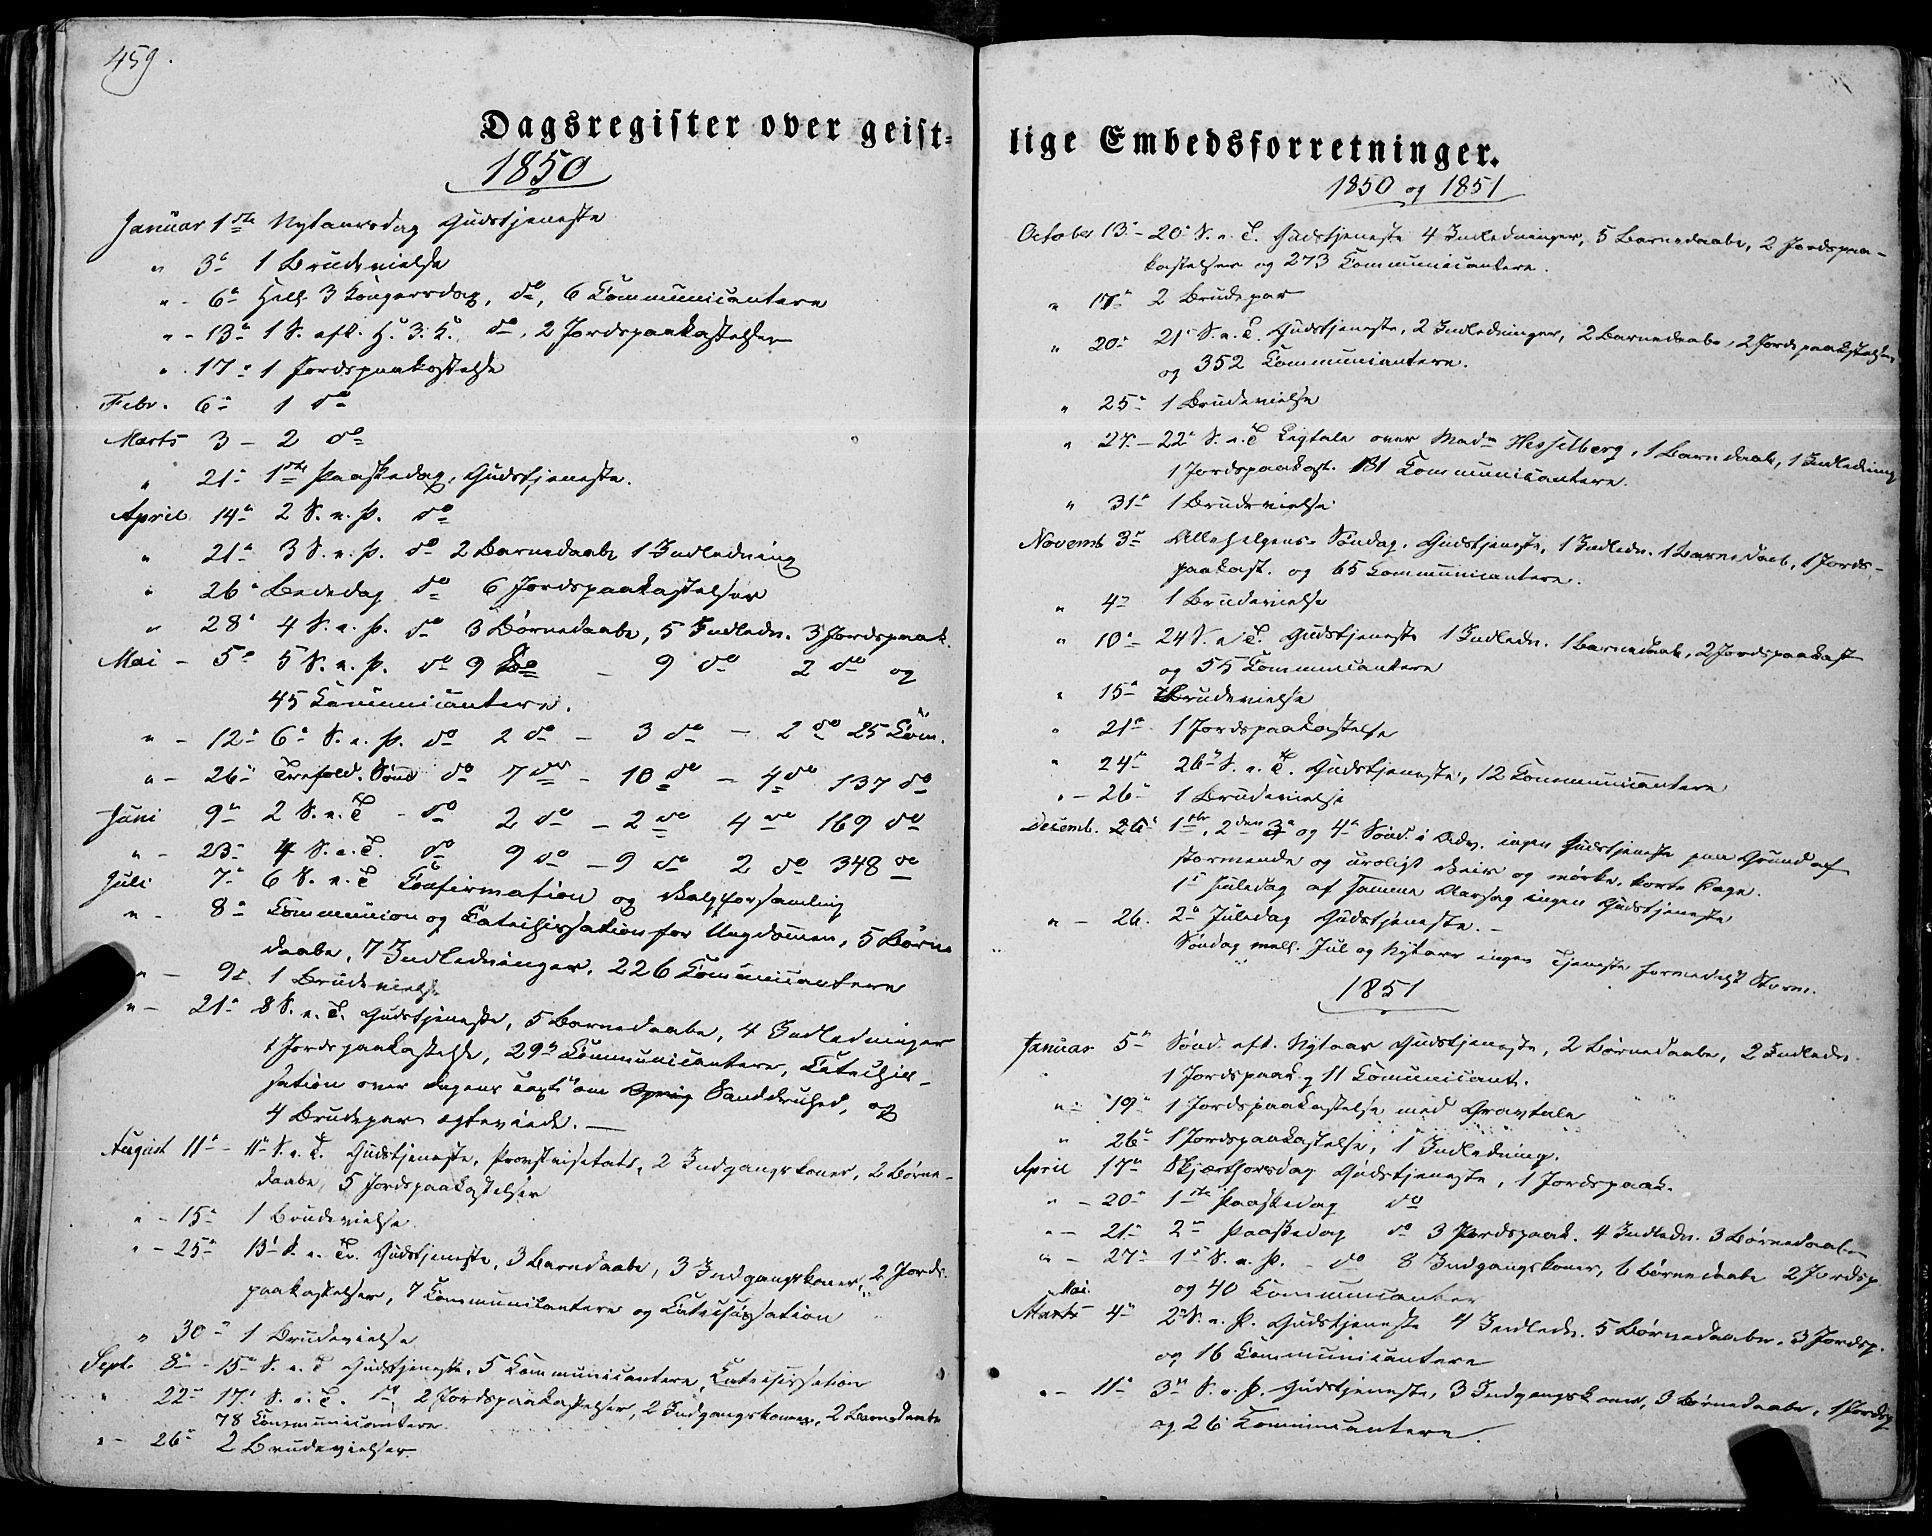 459.
Dagsregister over geist=
1850
Januar 1ste Nytaarsdag Gudstjeneste
" 3d 1 Brudevielse
" - 6d Hell. 3 Kongersdag, do, 6 Communicantere
" - 13d 1 S. eft. H. 3. K. do, 2 Jordspaakastelser
" 17d 1 Jordspaakastelse
Febr. 6d 1 do
Marts 3 - 2 do
" 21d 1ste Paaskedag, Gudstjeneste.
April 14d 2 S. e. P. do
" 21d 3 S. e. P. do 2 Barnedaabe 1 Indledning
" 26d Bededag do 6 Jordspaakastelser
" 28d 4 S. e. P. do 3 Børnedaabe, 5 Indledn. 3 Jordspaak.
Mai - 5d 5 S. e. P. do 9 do - 9 do 2 do og
45 Communicantere.
" - 12d 6d S. e. P. do 2 do - 3 do - 2 do 25 Com.
" - 26d Trefold. Sønd do 7 do - 10 do - 4 do 137 do
Juni 9d 2 S. e. T. - do 2 do - 2 do 4 do 169 do
" - 23d 4 S. e. T. do 9 do - 9 do 2 do 348 do
Juli 7d 6 S. e. T. Confirmation og Valgforsamling
" - 8d Communion og Catechisation for Ungdommen, 5 Børne
daabe, 7 Indledninger, 226 Communicantere
" - 9d 1 Brudevielse
" - 21d 8 S. e. T. Gudstjeneste, 5 Barnedaabe, 4 Indledninger
1 Jordspaakastelse, 29 Communicantere, Catechis-
sation over Dagens Text om Sanddruhed, og
4 Brudepar egteviede. -
August 11d - 11d S. e. T. Gudstjeneste, Provstvisitats, 2 Indgangskoner, 2 Børne-
daabe, 5 Jordspaakastelser
" - 15d 1 Brudevielse.
" - 25d 13d S. e. Tr. Gudstjeneste, 3 Barnedaabe, 3 Indgangskoner, 2 Jords-
paakastelser, 7 Communicantere og Catechisation
" 30d 1 Brudevielse
Sept. 8d - 15d S. e. T. Gudstjeneste, 5 Communicantere, Catechisation
" 22d 17d S. e. T. do 2 Jordspaakastelser, 2 Indgangskoner, 2 Barnedaabe
78 Communicantere
" - 26d 2 Brudevielser.
lige Embedsforretninger.
1850 og 1851
October 13d - 20d S. e. T. Gudstjeneste 4 Indledninger, 5 Barnedaabe, 2 Jordspaa-
kastelser og 273 Communicantere.
" 17d 2 Brudepar
" 20d 21d S. e. T. Gudstjeneste, 2 Indledninger, 2 Barnedaabe, 2 Jordspaakastelser
og 352 Communicantere.
" 25d 1 Brudevielse
" 27 - 22d S. e. T. Ligtale over Madm Hesselberg, 1 Barnedaab, 1 Indledning
1 Jordspaakast. 181 Communicantere.
" 31d 1 Brudevielse
Novemb 3d Allehelgens-Søndag. Gudstjeneste, 1 Indledn. 1 Barnedaab, 1 Jords-
paakast. og 65 Communicantere.
" 4d 1 Brudevielse
" 10d 24 S. e. T. Gudstjeneste 1 Indledn. 1 Barnedaab, 2 Jordspaakast
og 55 Communicantere
" 15d Brudevielse
" 21d 1 Jordspaakastelse
" 24d 26d S. e. T. Gudstjeneste, 12 Communicantere
" - 26d 1 Brudevielse
Decemb. 1ste, 2den 3d og 4d Sønd. i Adv. ingen Gudstjeneste paa Grund af
stormende og uroligt Veir og mørke, korte Dage.
1d Juledag af samme Aarsag ingen Gudstjeneste
" - 26. 2d Juledag Gudstjeneste. -
Søndag mell. Jul og Nytaar ingen Tjeneste formedelst Storm.
1851
Januar 5d Sønd. eft. Nytaar Gudstjeneste, 2 Børnedaabe, 2 Indledn.
1 Jordspaak. g 11 Comunicant.
" - 19d 1 Jordspaakastelse med Gravtale
" 26d 1 Jordspaakastelse, 1 Indledning.
April 17d Skjærthorsdag Gudstjeneste, 1 Jordspaak.
" - 20d 1ste Paaskedag do
" - 21d 2d Paaskedag do 3 Jordspaak. 4 Indledn. 3 Børnedaabe
" - 27d 1d S. e. P. - do 8 Indgangskoner, 6 Børnedaabe 2 Jordsp.
og 40 Communicanter
Mai
Marts 4d 2d S. e. P. Gudstjeneste 4 Indledn. 5 Børnedaabe, 3 Jordsp.
og 16 Communicantere
" - 11d 3d S. e. P. Gudstjeneste, 3 Indgangskoner, 3 Børnedaabe, 1 Jordsp
og 26 Communicantere.